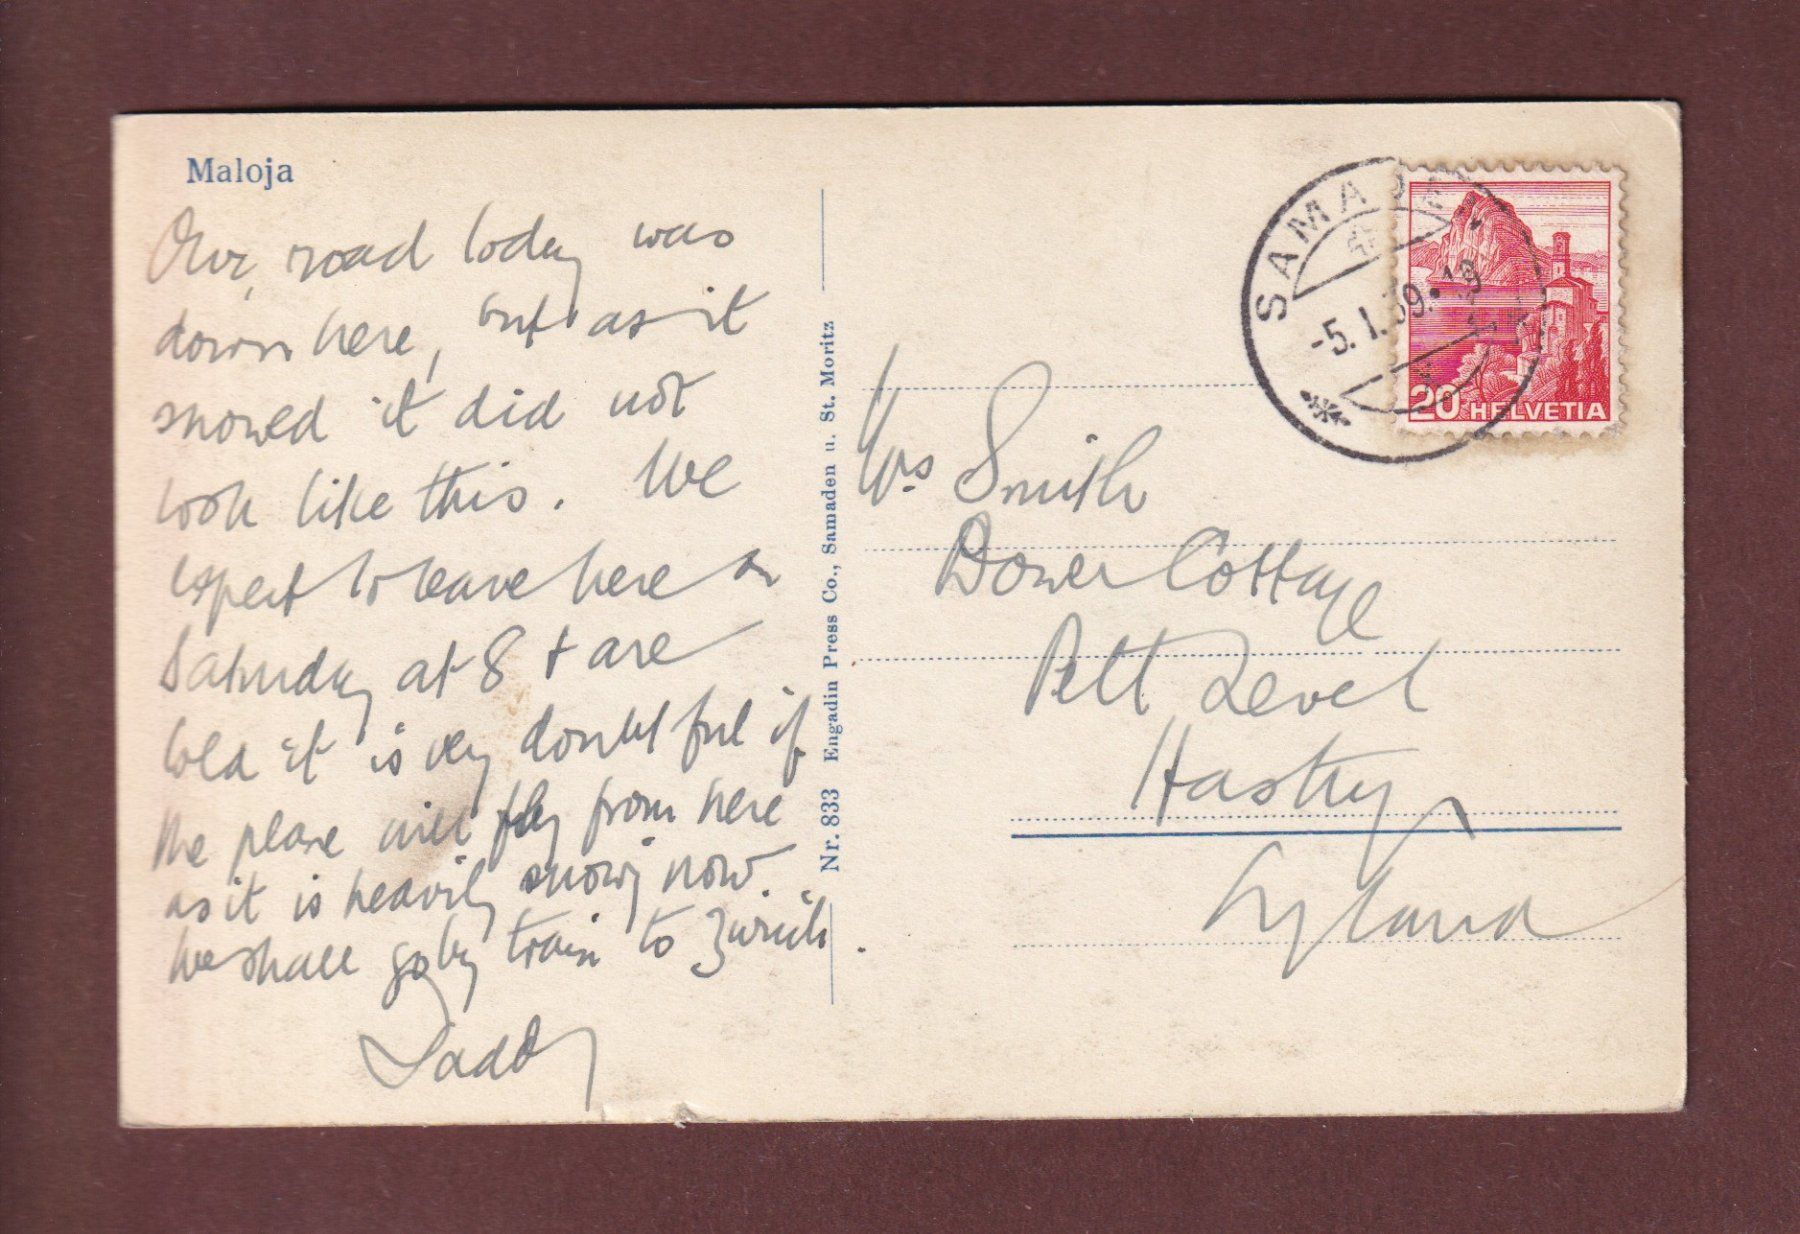 Maloja
Our road today was
down here, but as it
snowed it did not
look like this. We
expect to leave here on
Saturday at 8 + are
told it is very doubtful if
the plane will fly from here
as it is heavily snowing now.
We shall go by train to Zürich.
Daddy
Nr. 833 Engadin Press Co., Samaden u. St. Moritz
SAMADEN
-5.1.39.-19
20 HELVETIA
Mrs Smith
Dower Cottage
Pett Level
Hastings
England